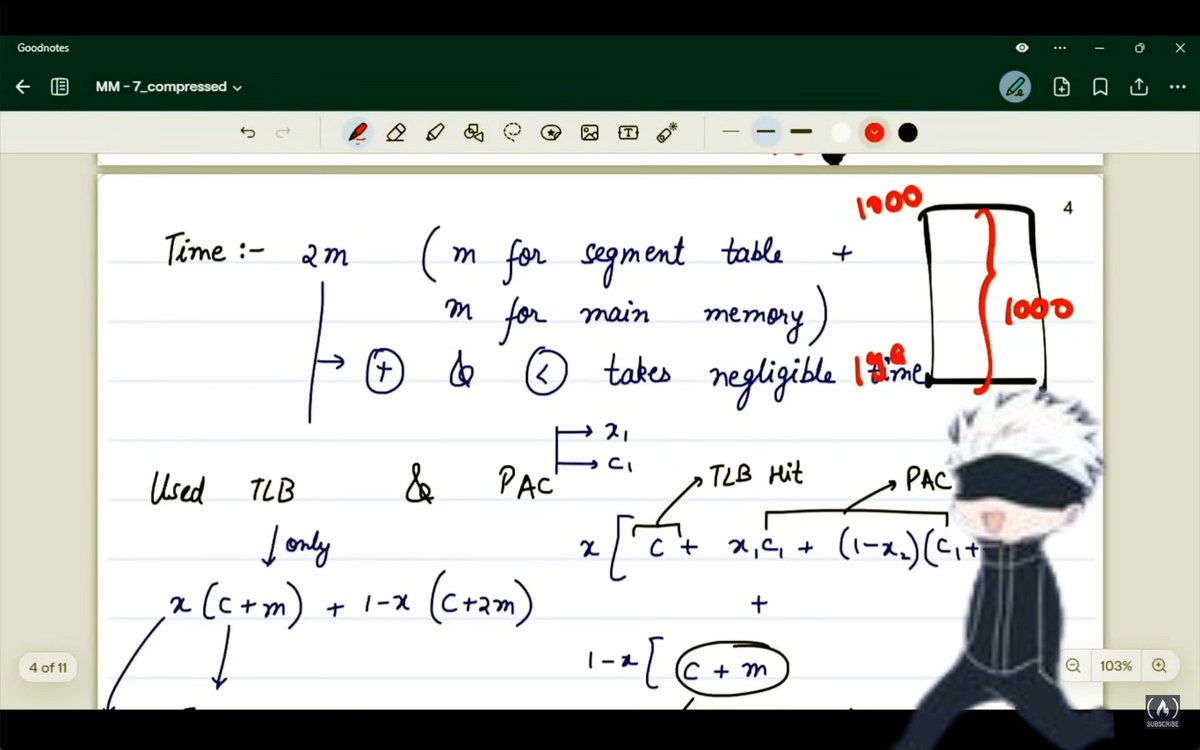 Goodnotes
MM - 7_compressed
1000
4
Time :- 2m ( m for segment table +
m for main memory)
1000
→ + & < takes negligible time
x1
c1
Used TLB & PAC
TLB Hit
PAC
↓ only
x [ c + x1c1 + (1-x2)(c1+
x (c+m) + 1-x (c+2m)
+
1-x [ c + m
4 of 11
103%
SUBSCRIBE